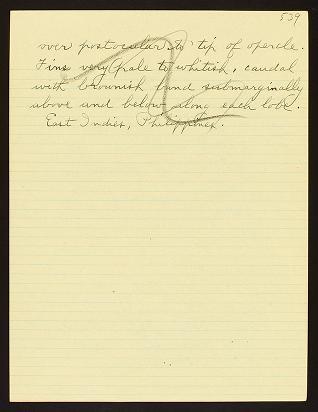 539
over postocular to tip of opercle.
Fins very pale to whitish, caudal
with brownish band submarginally
above and below along each lobe.
East Indies, Philippines.